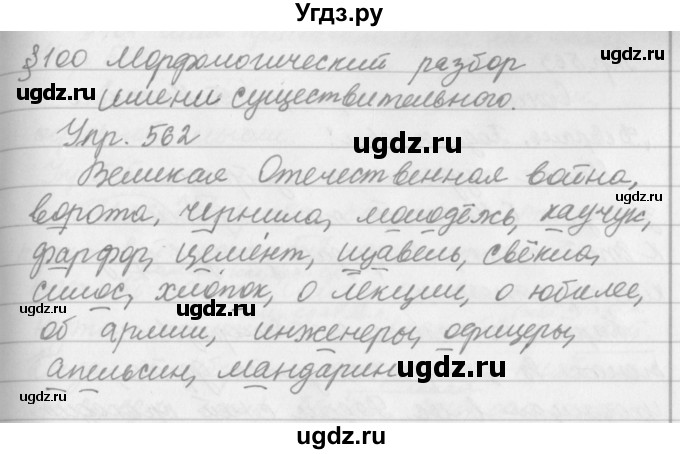 Угдз.ру
§100 Морфологический разбор
ugdz.ru
ugdz.ru
имени существительного.
Упр. 562
ugdz.ru
Великая Отечественная война,
ugdz.ru
ворота, чернила, молодёжь, каучук,
фарфор, цемент, щавель, свёкла,
силос, хлопок, о лекции, о юбилее,
ugdz.ru
ugdz.ru
ugdz.ru
об армии, инженеры, офицеры,
апельсин, мандарин
ugdz.ru
ugdz.ru